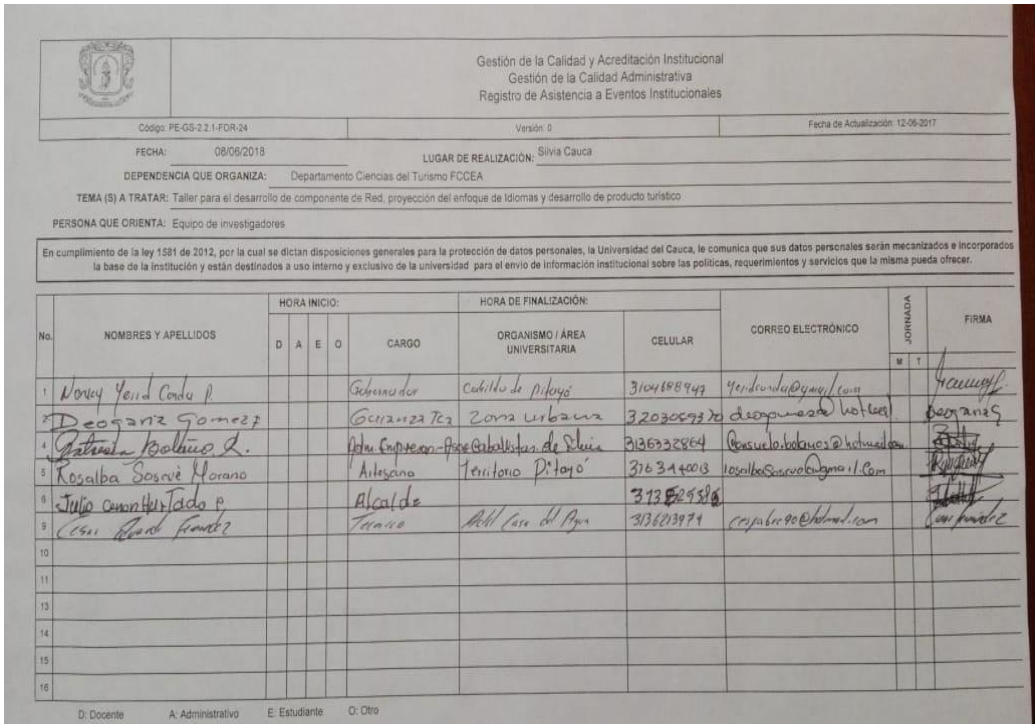 Gestión de la Calidad y Acreditación Institucional
Gestión de la Calidad Administrativa
Registro de Asistencia a Eventos Institucionales
Código: PE-GS-2.2.1-FOR-24 Versión: 0 Fecha de Actualización: 12-06-2017
FECHA: 08/06/2018 LUGAR DE REALIZACIÓN: Silvia Cauca
DEPENDENCIA QUE ORGANIZA: Departamento Ciencias del Turismo FCCEA
TEMA (S) A TRATAR: Taller para el desarrollo de componente de Red, proyección del enfoque de Idiomas y desarrollo de producto turístico
PERSONA QUE ORIENTA: Equipo de investigadores
En cumplimiento de la ley 1581 de 2012, por la cual se dictan disposiciones generales para la protección de datos personales, la Universidad del Cauca, le comunica que sus datos personales serán mecanizados e incorporados
la base de la institución y están destinados a uso interno y exclusivo de la universidad para el envío de información institucional sobre las políticas, requerimientos y servicios que la misma pueda ofrecer.
HORA INICIO: HORA DE FINALIZACIÓN:
No. NOMBRES Y APELLIDOS D A E O CARGO ORGANISMO / ÁREA UNIVERSITARIA CELULAR CORREO ELECTRÓNICO JORNADA M T FIRMA
1 Yeird P. Gobernador Cabildo de Pitayó 3104688947
2 Deoganz Gomezz zona urbana
4 Bolaños de Silvia 3136332864
5 Rosalba Morano Artesana Territorio Pitayó
8 Julio Hurtado P Alcalde
9 Cesar Tecnico Casa del Agua 3136213974
10
11
13
14
15
16
D: Docente A: Administrativo E: Estudiante O: Otro